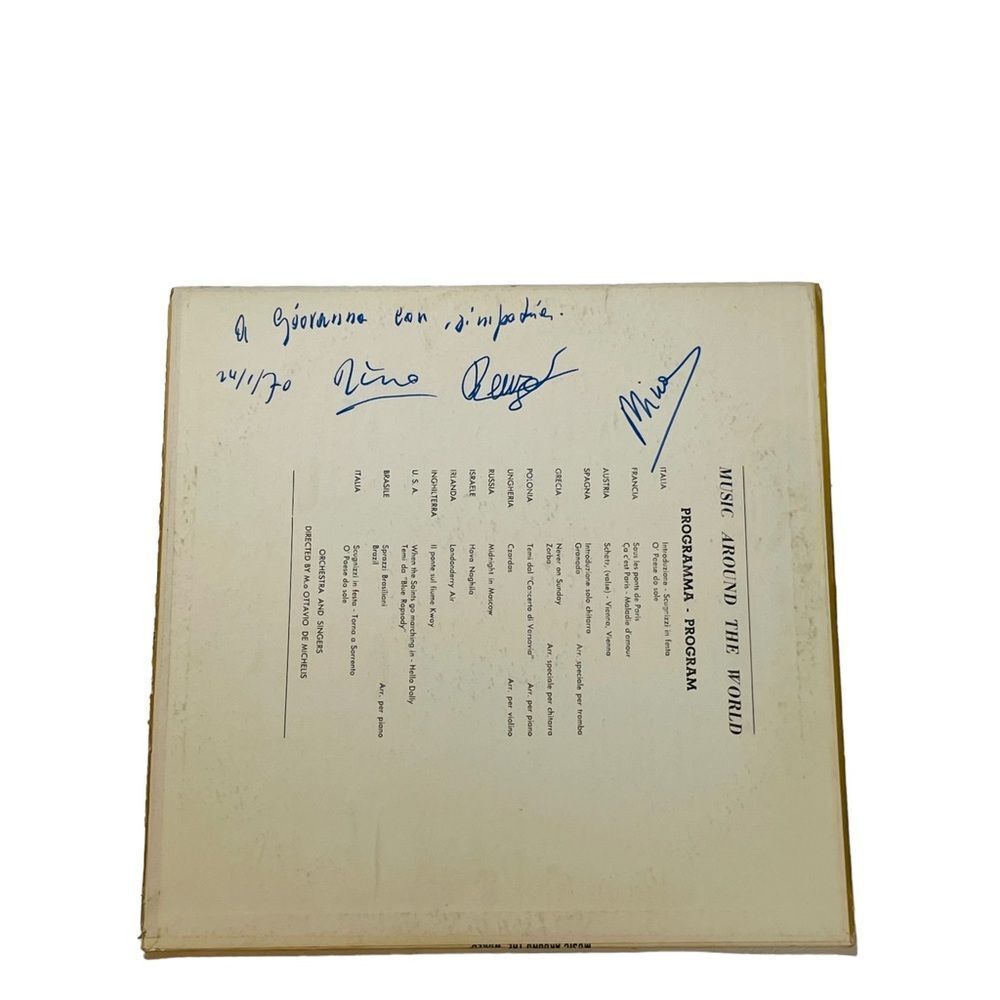 A Giovanna con simpatia.
24/1/70 Nino Renzo Mino
MUSIC AROUND THE WORLD
PROGRAMMA - PROGRAM
ITALIA Introduzione - Scugnizzi in festa
O' Paese do sole
FRANCIA Sous les ponts de Paris
Ça c'est Paris - Maladie d'amour
AUSTRIA Schatz, (valse) - Vienna, Vienna
SPAGNA Introduzione solo chitarra
Granada Arr. speciale per tromba
GRECIA Never on Sunday
Zorba Arr. speciale per chitarra
POLONIA Temi dal "Concerto di Varsavia" Arr. per piano
UNGHERIA Czardas Arr. per violino
RUSSIA Midnight in Moscow
ISRAELE Hava Naghila
IRLANDA Londonderry Air
INGHILTERRA Il ponte sul fiume Kway
U. S. A. When the Saints go marching in - Hello Dolly
Temi da "Blue Rapsody"
BRASILE Sprazzi Brasiliani
Brazil Arr. per piano
ITALIA Scugnizzi in festa - Torna a Sorrento
O' Paese do sole
ORCHESTRA AND SINGERS
DIRECTED BY M.o OTTAVIO DE MICHELIS
MUSIC AROUND THE WORLD